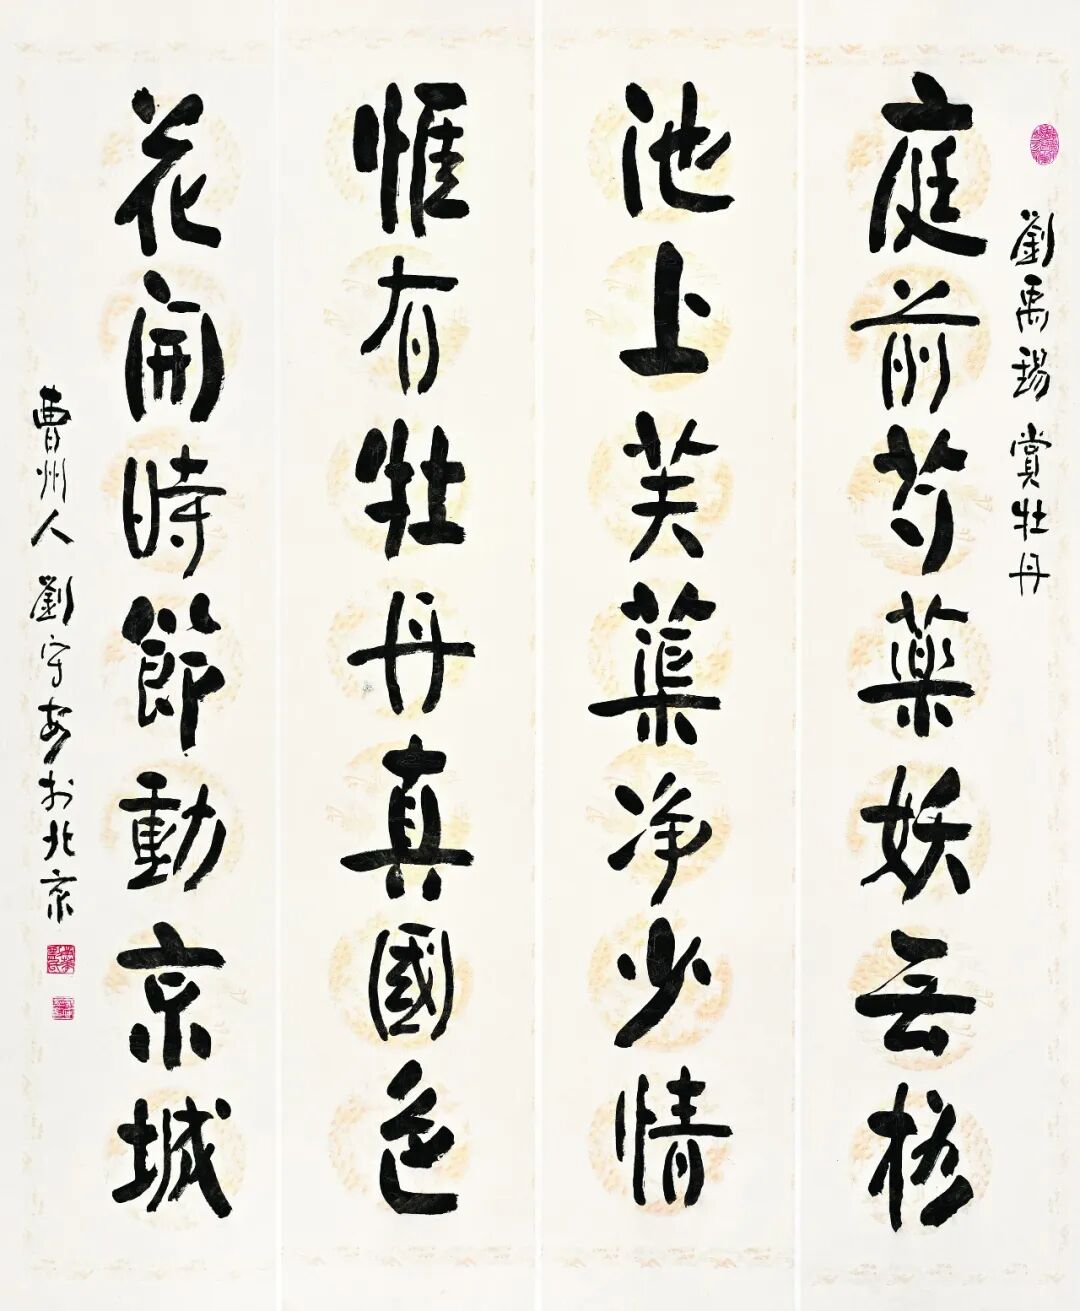 劉禹錫賞牡丹
庭前芍藥妖云格
池上芙蕖净少情
惟有牡丹真國色
花開時節動京城
曹州人劉守安於北京